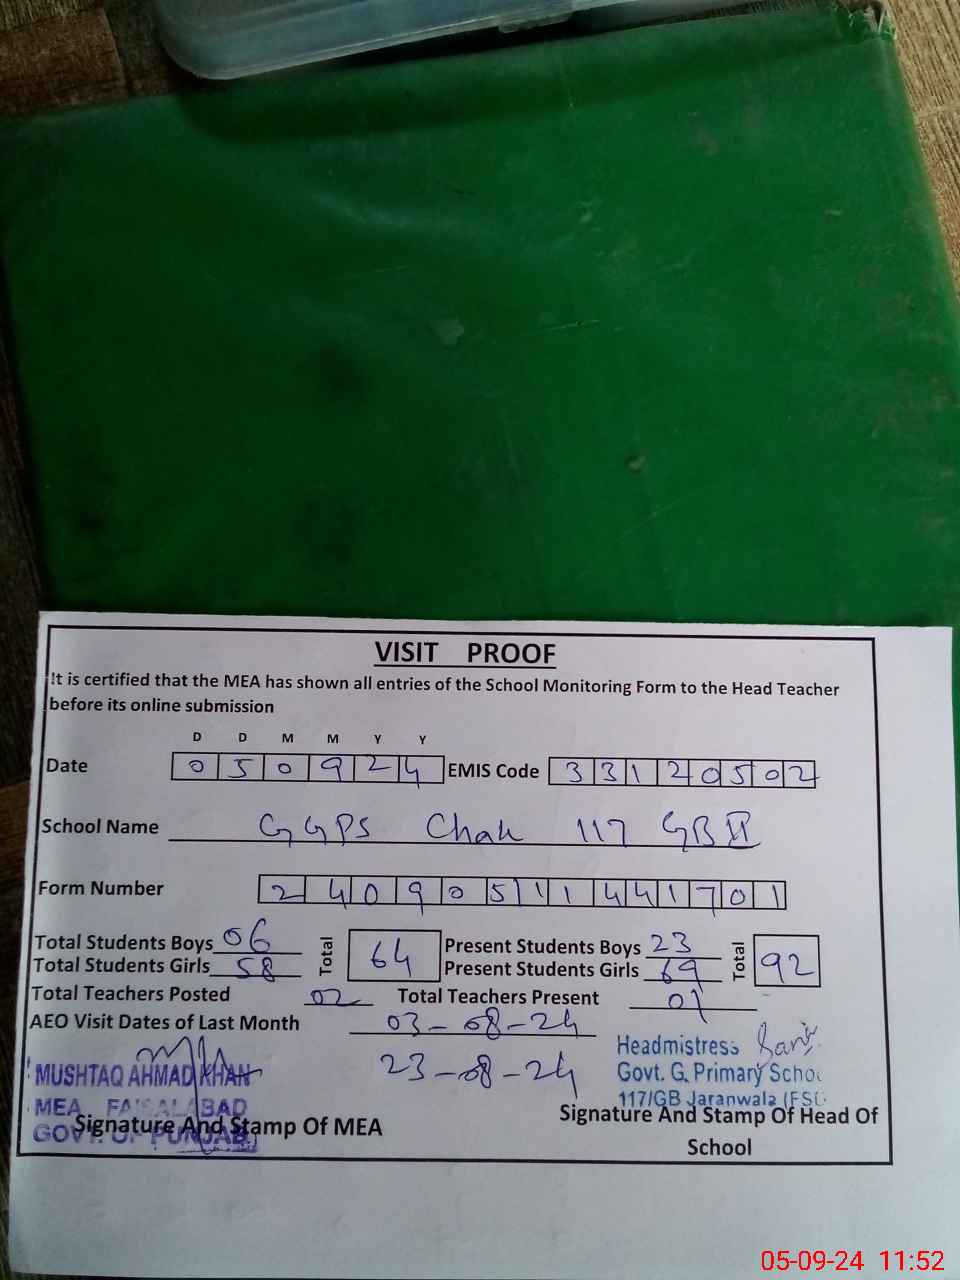 VISIT PROOF
It is certified that the MEA has shown all entries of the School Monitoring Form to the Head Teacher
before its online submission
D D M M Y Y
Date 0 5 0 9 2 4 EMIS Code 3 3 1 2 0 5 0 2
School Name GGPS Chak 117 GB II
Form Number 2 4 0 9 0 5 1 1 4 4 1 7 0 1
Total Students Boys 06 Total 64 Present Students Boys 23 Total 92
Total Students Girls 58 Present Students Girls 69
Total Teachers Posted 02 Total Teachers Present 01
AEO Visit Dates of Last Month 03-08-24
23-08-24
MUSHTAQ AHMAD KHAN
MEA FAISALABAD
GOVT. OF PUNJAB
Signature And Stamp Of MEA
Headmistress
Govt. G. Primary Schoo
117/GB Jaranwala (FSD
Signature And Stamp Of Head Of
School
05-09-24 11:52